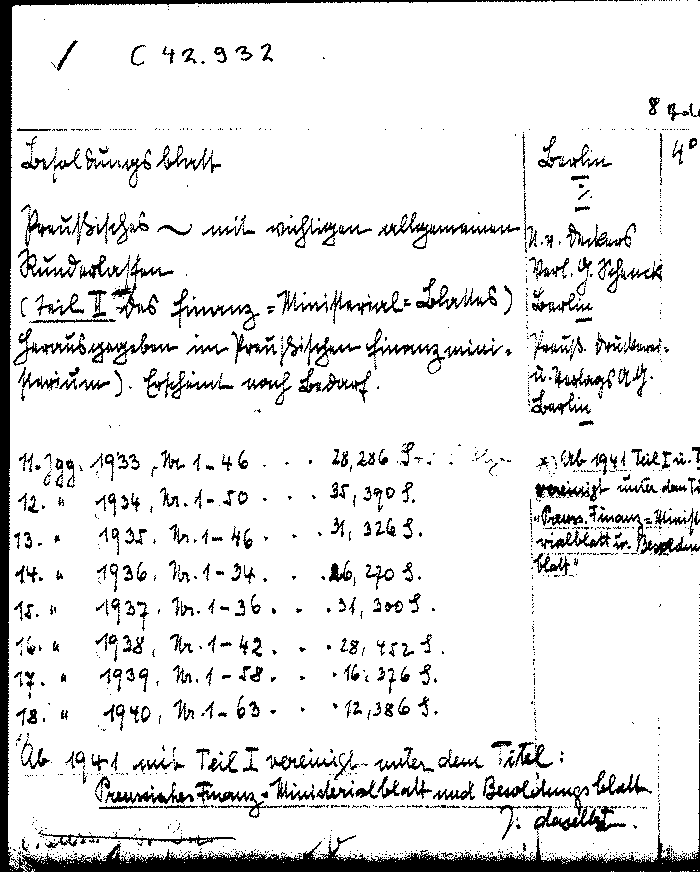 C 42.932
8 Bde
Besoldungsblatt
Berlin
4°
Preußisches ~ mit wichtigen allgemeinen
Runderlassen
(Teil II des Finanz-Ministerial-Blattes)
herausgegeben im Preußischen Finanzmini-
sterium). Erscheint nach Bedarf.
R. v. Deckers
Verl. G. Schenck
Berlin
Preuß. Druckerei-
u. Verlags A.G.
Berlin
11. Jgg. 1933, Nr. 1-46 . . . 28, 286 S.
12. " 1934, Nr. 1-50 . . . 35, 390 S.
13. " 1935, Nr. 1-46 . . . 31, 326 S.
14. " 1936, Nr. 1-34 . . . 26, 270 S.
15. " 1937, Nr. 1-36 . . . 31, 300 S.
16. " 1938, Nr. 1-42 . . . 28, 452 S.
17. " 1939, Nr. 1-58 . . . 16, 376 S.
18. " 1940, Nr. 1-63 . . . 12, 386 S.
x) Ab 1941 Teil I u. T
vereinigt unter dem Ti
"Preuss. Finanz-Minist
rialblatt u. Besoldun
blatt"
Ab 1941 mit Teil I vereinigt unter dem Titel:
Preussisches Finanz-Ministerialblatt und Besoldungsblatt
J. daselbst.